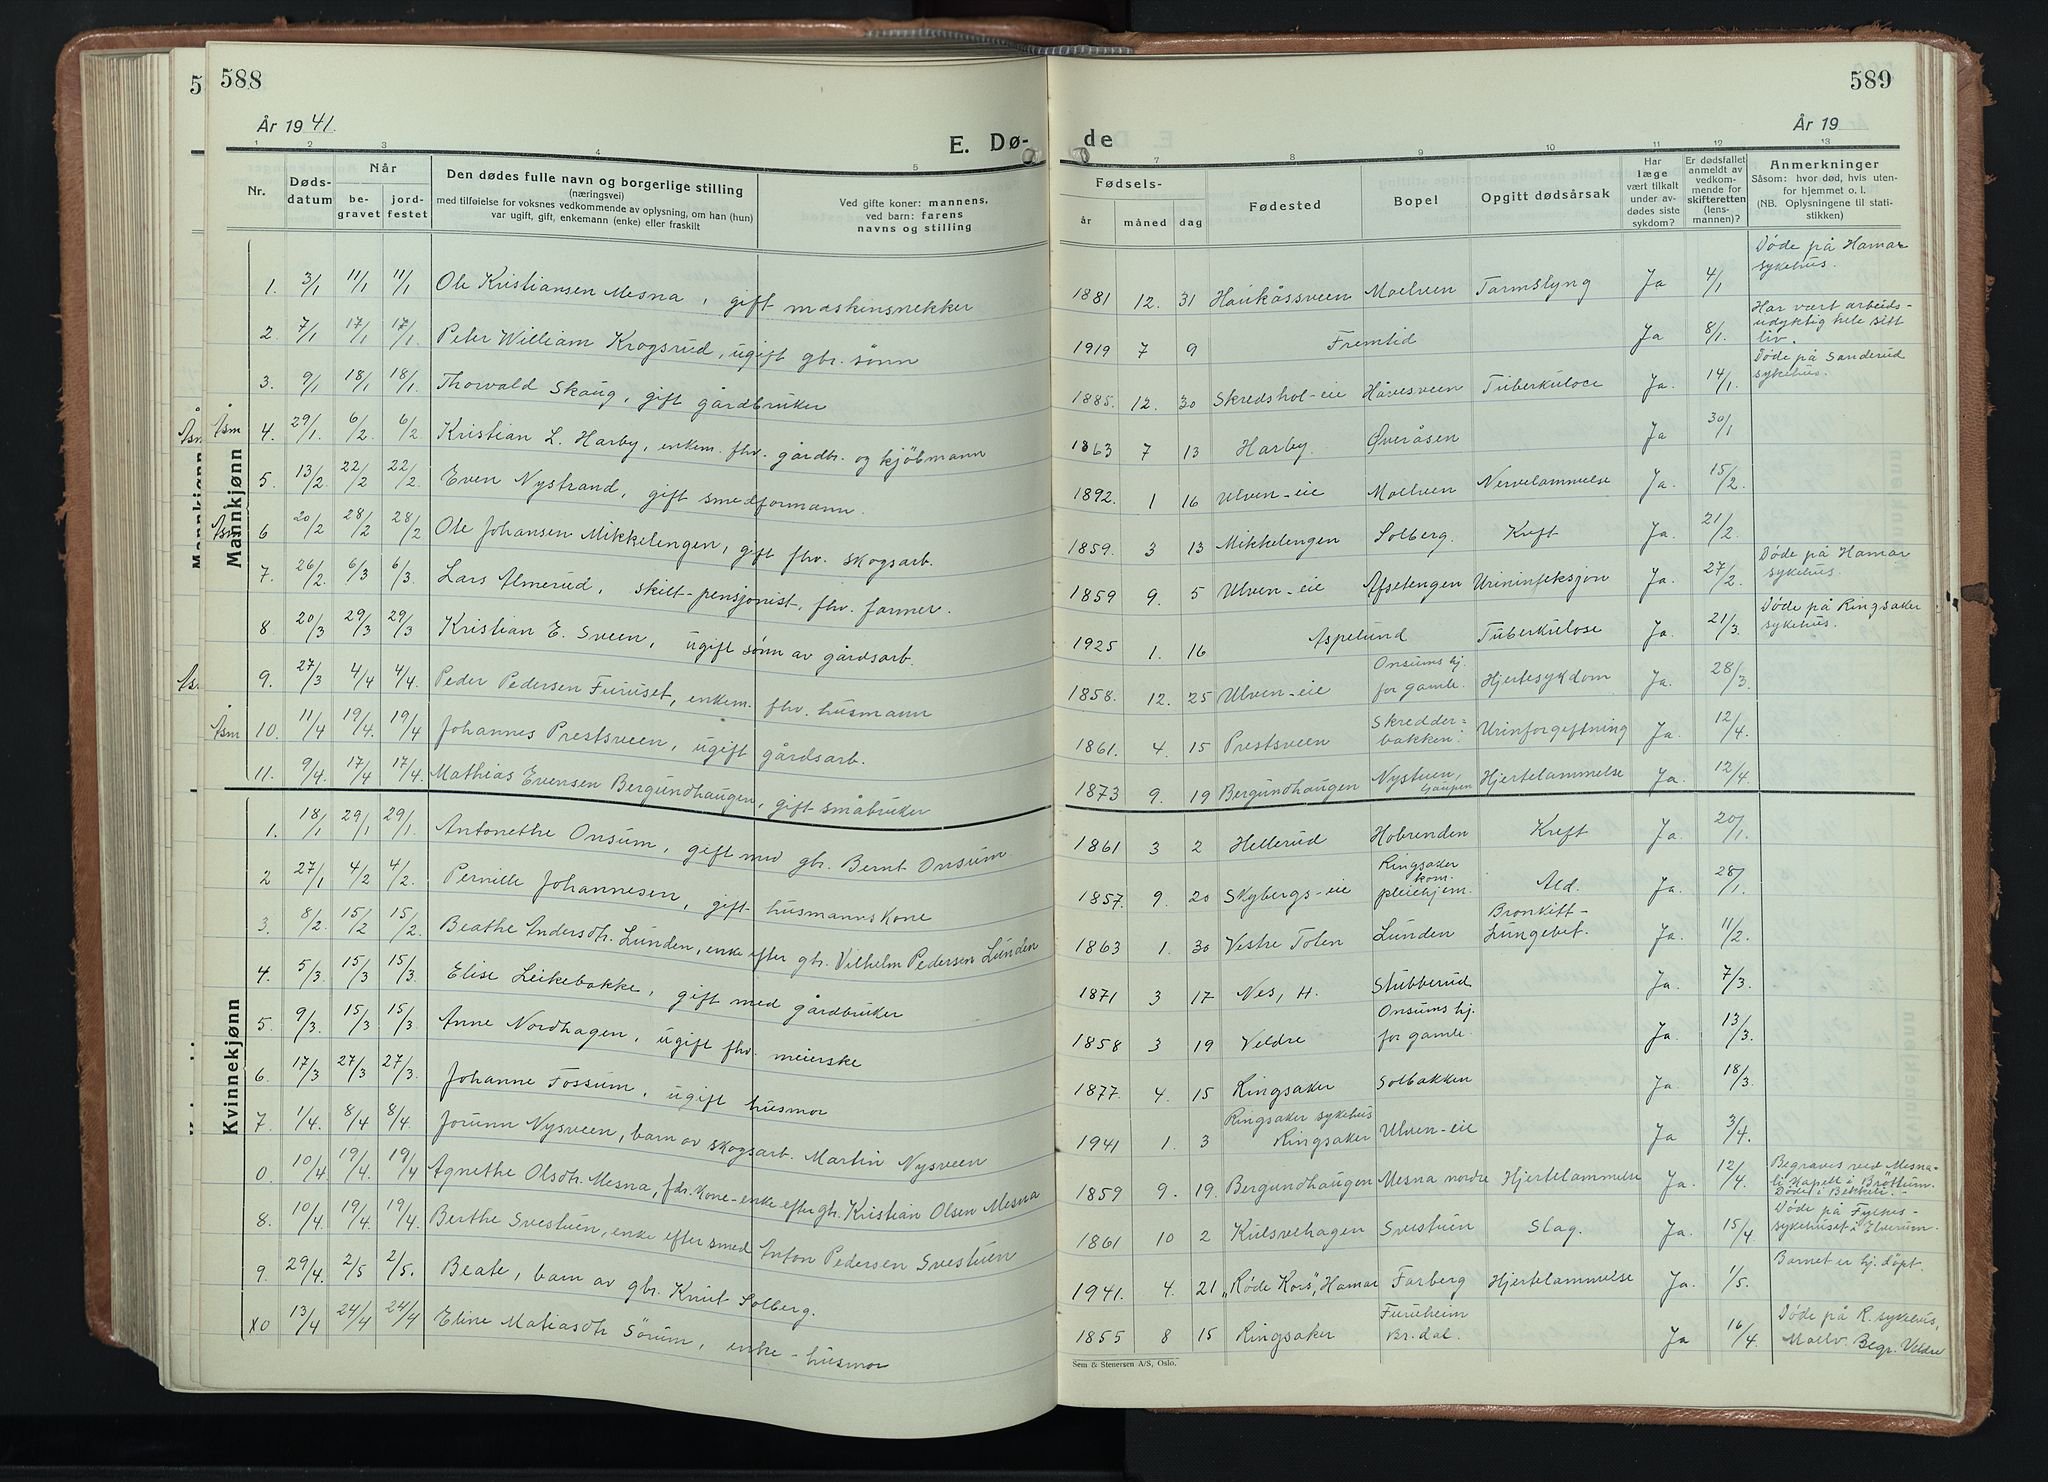 588
År 1941.
E. Dø-
1 2 3 4 5
Nr.
Døds-
datum
Når
be-
gravet
jord-
festet
Den dødes fulle navn og borgerlige stilling
(næringsvei)
med tilføielse for voksnes vedkommende av oplysning, om han (hun)
var ugift, gift, enkemann (enke) eller fraskilt
Ved gifte koner: mannens,
ved barn: farens
navns og stilling
Mannkjønn
1. 3/1 11/1 11/1 Ole Kristiansen Mesna, gift maskinsnekker
2. 7/1 17/1 17/1. Peter William Krogsrud, ugift gbr. sønn
3. 9/1 18/1 18/1. Thorvald Skaug, gift gårdbruker
Åsm 4. 29/1. 6/2. 6/2 Kristian L. Harby, enkem. fhv. gårdbr. og kjöbmann
5. 13/2 22/2 22/2. Even Nystrand, gift smedformann.
Åsm 6 20/2 28/2 28/2 Ole Johansen Mikkelengen, gift fhv. skogsarb.
7. 26/2 6/3 6/3. Lars Almerud, skilt-pensjonist, fhv. farmer.
8 20/3 29/3 29/3 Kristian E. Sveen, ugift sønn av gårdsarb.
9. 27/3 4/4 4/4. Peder Pedersen Furuset, enkem. fhv. husmann
Åsm 10. 11/4 19/4. 19/4 Johannes Prestsveen, ugift gårdsarb.
11. 9/4. 17/4 17/4. Mathias Evensen Bergundhaugen, gift småbruker
Kvinnekjønn
1. 18/1 29/1 29/1. Antonethe Onsum, gift med gbr. Bernt Onsum.
2 27/1 4/2 4/2. Pernille Johannesen, gift husmannskone
3. 8/2. 15/2 15/2. Beathe Andersdtr. Lunden, enke efter gbr. Vilhelm Pedersen Lunden
4. 5/3 15/3 15/3. Elise Leikebakke, gift med gårdbruker
5. 9/3. 15/3 15/3. Anne Nordhagen, ugift fhv. meierske
6. 17/3 27/3 27/3. Johanne Fossum, ugift husmor
7. 1/4. 8/4. 8/4. Jorunn Nysveen, barn av skogsarb. Martin Nysveen
0. 10/4. 19/4. 19/4 Agnethe Olsdtr. Mesna, fdr. kone-enke efter gbr. Kristian Olsen Mesna
8. 10/4. 19/4 19/4. Berthe Svestuen, enke efter smed Anton Pedersen Svestuen
9. 29/4. 2/5 2/5. Beate, barn av gbr. Knut Solberg.
10 13/4 24/4 24/4 Eline Matiasdtr Sørum, enke - husmor
589
År 19
de
7 8 9 10 11 12 13
Fødsels-
år måned dag
Fødested
Bopel
Opgitt dødsårsak
Har
læge
vært tilkalt
under av-
dødes siste
sykdom?
Er dødsfallet
anmeldt av
vedkom-
mende for
skifteretten
(lens-
mannen)?
Anmerkninger
Såsom: hvor død, hvis uten-
for hjemmet o. l.
(NB. Oplysningene til stati-
stikken)
1881 12. 31 Haukåssveen Moelven Tarmslyng Ja 4/1 Døde på Hamar sykehus.
1919 7 9 Fremtid Ja 8/1. Har vært arbeids-udyktig hele sitt liv.
1885. 12. 30 Skredshol-eie Håvesveen Tuberkulose Ja. 14/1. Døde på Sanderud sykehus.
1863 7 13 Harby. Øveråsen Ja 30/1
1892. 1 16 Ulven-eie Moelven Nervelammelse Ja. 15/2
1859. 3 13 Mikkelengen Solberg. Kreft Ja. 21/2.
1859 9. 5 Ulven-eie Afsetengen Urininfeksjon Ja. 27/2. Døde på Hamar sykehus.
1925 1. 16 Aspelund Tuberkulose Ja. 21/3. Døde på Ringsaker sykehus.
1858. 12. 25 Ulven-eie Onsums hj. for gamle. Hjertesykdom Ja. 28/3.
1861. 4. 15 Prestsveen Skredder=bakken. Urinforgiftning Ja. 12/4.
1873 9. 19 Bergundhaugen Nystuen, Gaupen Hjertelammelse Ja. 12/4
1861 3 2 Hellerud Kreft Ja. 20/1.
1857. 9. 20 Skybergs-eie Ringsaker kom. pleiehjem. Ald. Ja. 28/1.
1863 1. 30 Vestre Toten Lunden Bronkitt-Lungebet. Ja. 11/2.
1871 3 17 Nes, H. Stubberud Ja. 7/3.
1858 3 19 Veldre Onsums hj. for gamle. Ja. 13/3.
1877. 4. 15 Ringsaker Solbakken Ja. 18/3.
1941 1. 3 Ringsaker sykehus Ringsaker Ulven-eie Ja 3/4.
1859 9. 19. Bergundhaugen Mesna nordre Hjertelammelse Ja. 12/4. Begraves ved Mesna-li kapell i Brøttum. Døde i Bekkeli.
1861 10 2 Kulsvehagen Svestuen Slag. Ja. 15/4 Døde på Fylkes-sykehuset i Elverum.
1941. 4. 21 "Røde Kors", Hamar Farberg Hjertelammelse Ja. 1/5. Barnet er hj. döpt.
1855 8 15 Ringsaker Furuheim Br.dal. Ja 16/4. Døde på R. sykehus, Moelv. Begr. Veldre
Sem & Stenersen A/S, Oslo.